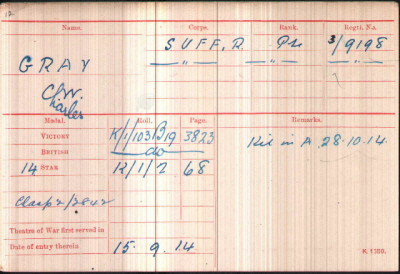 12
Name. Corps. Rank. Regtl. No.
SUFF. R. Pte 3/9198
GRAY — " — — " — — " —
C.W.
Charles
Medal. Roll. Page. Remarks.
VICTORY K/1/103B19 3823
BRITISH do
Kil in A 28.10.14.
14 STAR K/1/2 68
Clasp
Theatre of War first served in
Date of entry therein 15. 9. 14
K. 1380.